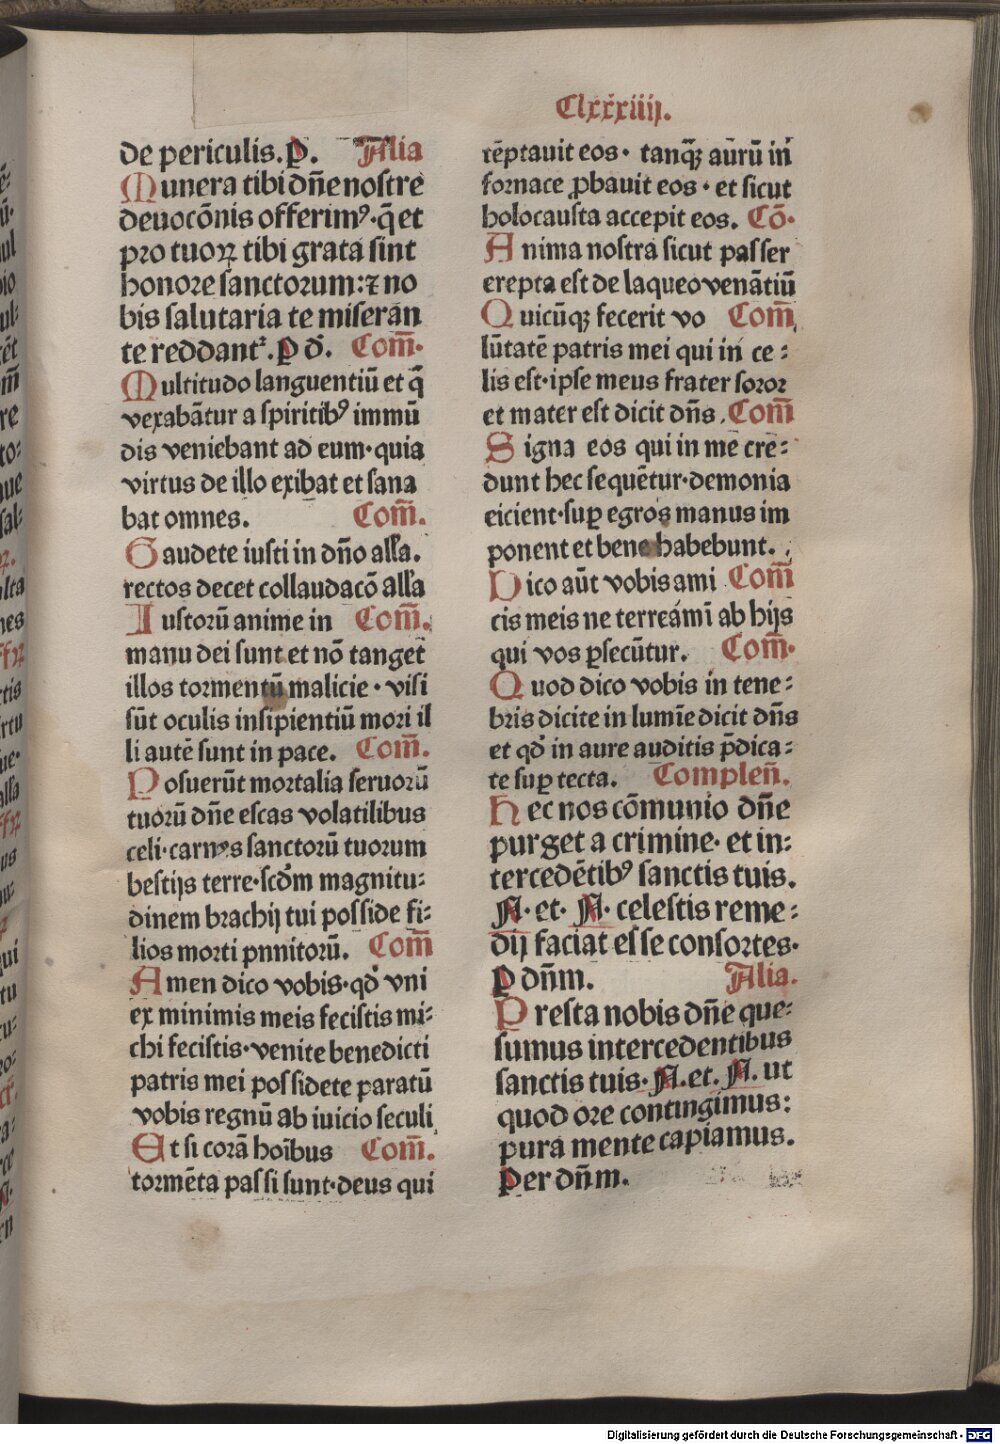 Clxxxiiij.
de periculis. P. Alia
Munera tibi dñe nostre
deuocõnis offerimꝰ· q̃ et
pro tuoꝝ tibi grata sint
honore sanctorum: ⁊ no
bis salutaria te miseran
te reddant᷑. P d̄. Com̃·
Multitudo languentiū et q̄
vexabãtur a spiritibꝰ immū
dis veniebant ad eum· quia
virtus de illo exibat et sana
bat omnes. Com̃.
Gaudete iusti in dño alľa.
rectos decet collaudacõ alľa
Iustorū anime in Com̃.
manu dei sunt et nõ tanget
illos tormentū malicie · visi
sūt oculis insipientiū mori il
li autē sunt in pace. Com̃.
Posuerūt mortalia seruorū
tuorū dñe escas volatilibus
celi· carnes sanctorū tuorum
bestijs terre· scďm magnitu⸗
dinem brachij tui posside fi⸗
lios morti pnnitorū. Com̃
Amen dico vobis· qď vni
ex minimis meis fecistis mi⸗
chi fecistis· venite benedicti
patris mei possidete paratū
vobis regnū ab iuicio seculi
Et si corā hoĩbus Com̃.
tormēta passi sunt· deus qui
tēptauit eos· tanqꝫ aūrū in
fornace ꝓbauit eos · et sicut
holocausta accepit eos. Cõ·
Anima nostra sicut passer
erepta est de laqueo venātiū
Quicūqꝫ fecerit vo Com̃
lūtatē patris mei qui in ce⸗
lis est· ipse meus frater soror
et mater est dicit dñs. Com̃
Signa eos qui in me cre⸗
dunt hec sequētur· demonia
eicient· suꝑ egros manus im
ponent et bene habebunt.
Dico aūt vobis ami Com̃
cis meis ne terreāmĩ ab hijs
qui vos ꝑsecūtur. Com̃·
Quod dico vobis in tene⸗
bris dicite in lumĩe dicit dñs
et qď in aure auditis p̄dica⸗
te suꝑ tecta. Compleñ.
Hec nos cõmunio dñe
purget a crimine· et in⸗
tercedētibꝰ sanctis tuis.
N· et· N· celestis reme⸗
dij faciat esse consortes·
P dñm. Alia.
Presta nobis dñe que⸗
sumus intercedentibus
sanctis tuis· N. et. N. ut
quod ore contingimus:
pura mente capiamus.
Per dñm.
Digitalisierung gefördert durch die Deutsche Forschungsgemeinschaft · DFG